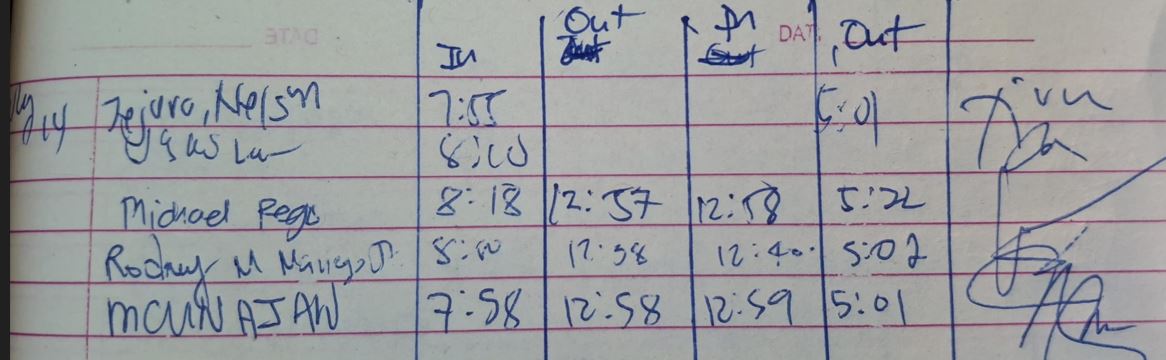 DATE
In Out In DAT Out
14 Tejuro, Nelson 7:55 5:01
8:00
Michael Rego 8:18 12:57 12:58 5:22
Rodney M 8:00 12:58 12:40 5:02
MCUNAJAN 7:58 12:58 12:59 5:01